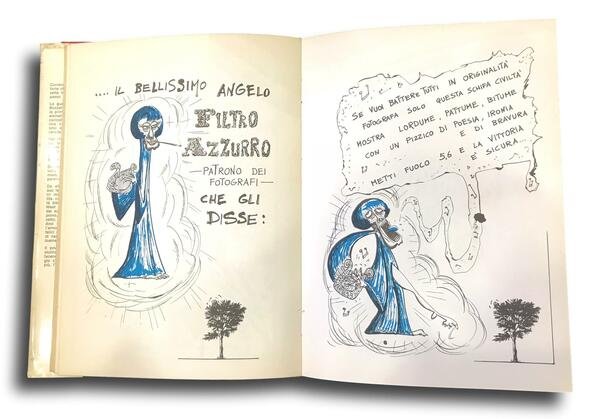 .... IL BELLISSIMO ANGELO
FILTRO
AZZURRO
— PATRONO DEI
FOTOGRAFI —
CHE GLI
DISSE:
SE VUOI BATTERE TUTTI IN ORIGINALITÀ
FOTOGRAFA SOLO QUESTA SCHIFA CIVILTÀ
MOSTRA LORDUME, PATTUME, BITUME
CON UN PIZZICO DI POESIA, IRONIA
E DI BRAVURA
METTI FUOCO 5,6 E LA VITTORIA
È SICURA...